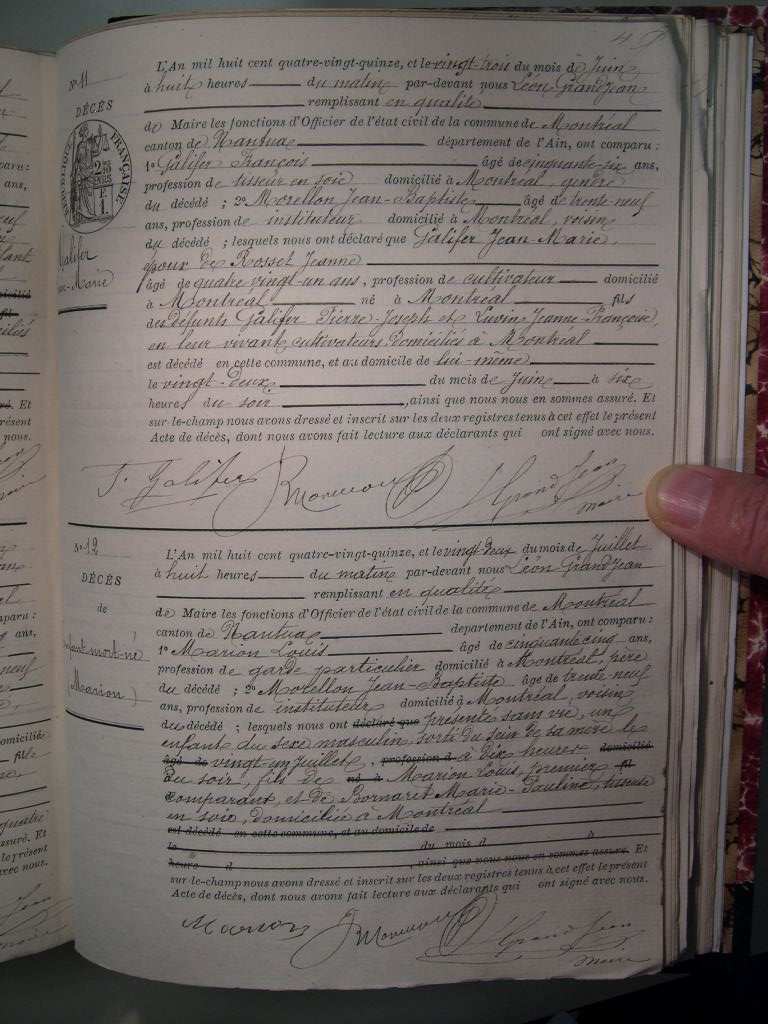 49
N° 11
DÉCÈS
RÉPUBLIQUE FRANÇAISE
Galifer
Jean-Marie
L'An mil huit cent quatre-vingt-quinze, et le vingt-trois du mois d Juin
à huit heures du matin par-devant nous Léon Grandjean
remplissant en qualité
de Maire les fonctions d'Officier de l'état civil de la commune de Montréal
canton de Nantua département de l'Ain, ont comparu :
1° Galifer François âgé de cinquante-six ans,
profession de tisseur en soie domicilié à Montréal, gendre
du décédé ; 2° Morellon Jean-Baptiste âgé de trente-neuf
ans, profession de instituteur domicilié à Montréal, voisin
du décédé ; lesquels nous ont déclaré que Galifer Jean-Marie,
époux de Rosset Jeanne
âgé de quatre-vingt-un ans, profession de cultivateur domicilié
à Montréal né à Montréal fils
des défunts Galifer Pierre-Joseph et Luvin Jeanne-Françoise,
en leur vivant cultivateurs domiciliés à Montréal
est décédé en cette commune, et au domicile de lui-même
le vingt-deux du mois de Juin à six
heures du soir, ainsi que nous nous en sommes assuré. Et
sur-le-champ nous avons dressé et inscrit sur les deux registres tenus à cet effet le présent
Acte de décès, dont nous avons fait lecture aux déclarants qui ont signé avec nous.
F. Galifer JMorellon LGrandJean
maire
N° 12
DÉCÈS
de
Enfant mort-né
(Marion)
L'An mil huit cent quatre-vingt-quinze, et le vingt-deux du mois de Juillet
à huit heures du matin par-devant nous Léon Grandjean
remplissant en qualité
de Maire les fonctions d'Officier de l'état civil de la commune de Montréal
canton de Nantua département de l'Ain, ont comparu :
1° Marion Louis âgé de cinquante cinq ans,
profession de garde particulier domicilié à Montréal, père
du décédé ; 2° Morellon Jean-Baptiste âgé de trente-neuf
ans, profession de instituteur domicilié à Montréal, voisin
du décédé ; lesquels nous ont déclaré que présenté sans vie, un
enfant du sexe masculin, sorti du sein de sa mère le
âgé de vingt-un juillet, profession d à dix heures domicilié
du soir, fils de né à Marion Louis, premier fil
comparant, et de Bornaret Marie-Pauline, tisseuse
en soie, domiciliée à Montréal
est décédé en cette commune, et au domicile de
le du mois d à
heure d , ainsi que nous nous en sommes assuré. Et
sur-le-champ nous avons dressé et inscrit sur les deux registres tenus à cet effet le présent
Acte de décès, dont nous avons fait lecture aux déclarants qui ont signé avec nous.
Marion JMorellon LGrandJean
maire